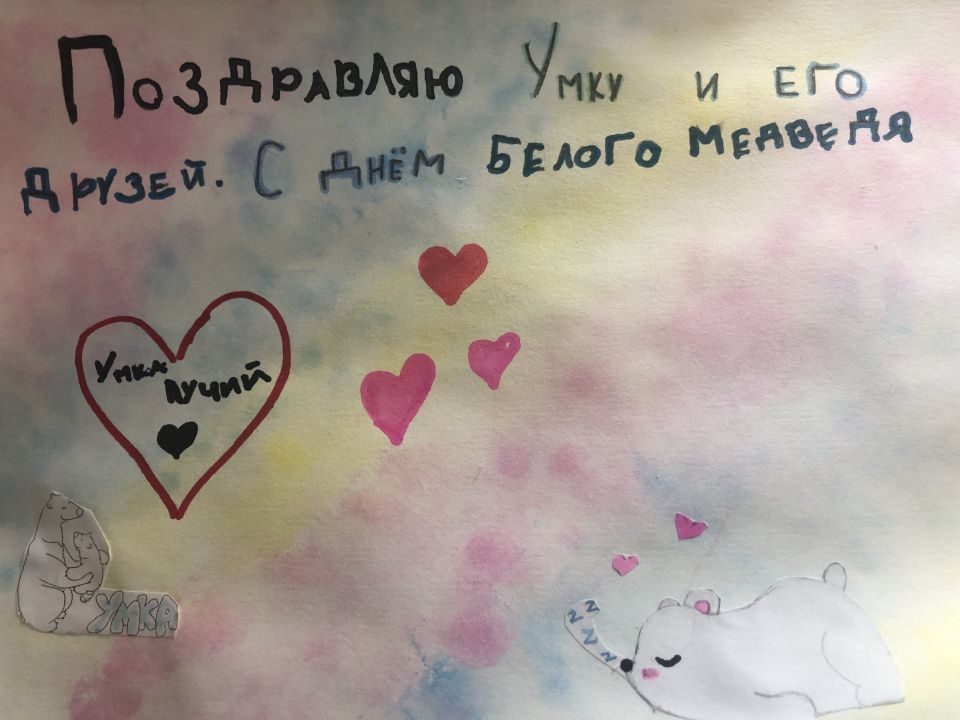 Поздравляю Умку и его
друзей. С днём Белого медведя
Умка
лучий
УМКА
zz
z
z